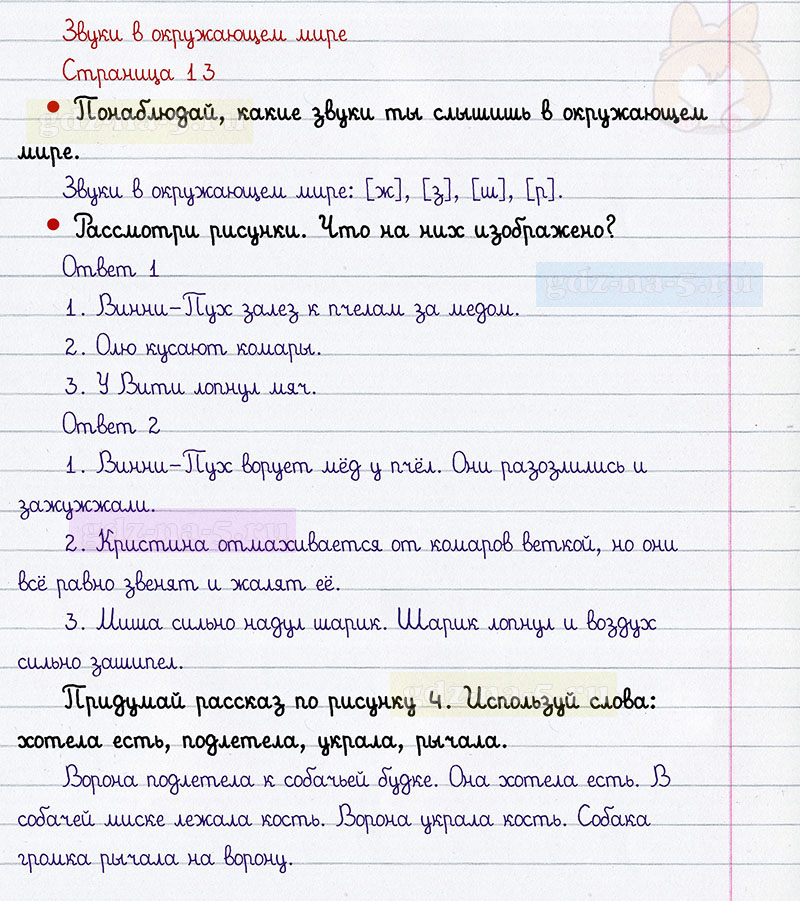 Звуки в окружающем мире
Страница 13
• Понаблюдай, какие звуки ты слышишь в окружающем
gdz-na-5.ru
мире.
Звуки в окружающем мире: [ж], [з], [ш], [р].
• Рассмотри рисунки. Что на них изображено?
Ответ 1
gdz-na-5.ru
1. Винни-Пух залез к пчелам за медом.
2. Олю кусают комары.
3. У Вити лопнул мяч.
Ответ 2
1. Винни-Пух ворует мёд у пчёл. Они разозлились и
зажужжали.
gdz-na-5.ru
2. Кристина отмахивается от комаров веткой, но они
всё равно звенят и жалят её.
3. Миша сильно надул шарик. Шарик лопнул и воздух
сильно зашипел.
gdz-na-5.ru
Придумай рассказ по рисунку 4. Используй слова:
хотела есть, подлетела, украла, рычала.
Ворона подлетела к собачьей будке. Она хотела есть. В
собачей миске лежала кость. Ворона украла кость. Собака
громка рычала на ворону.